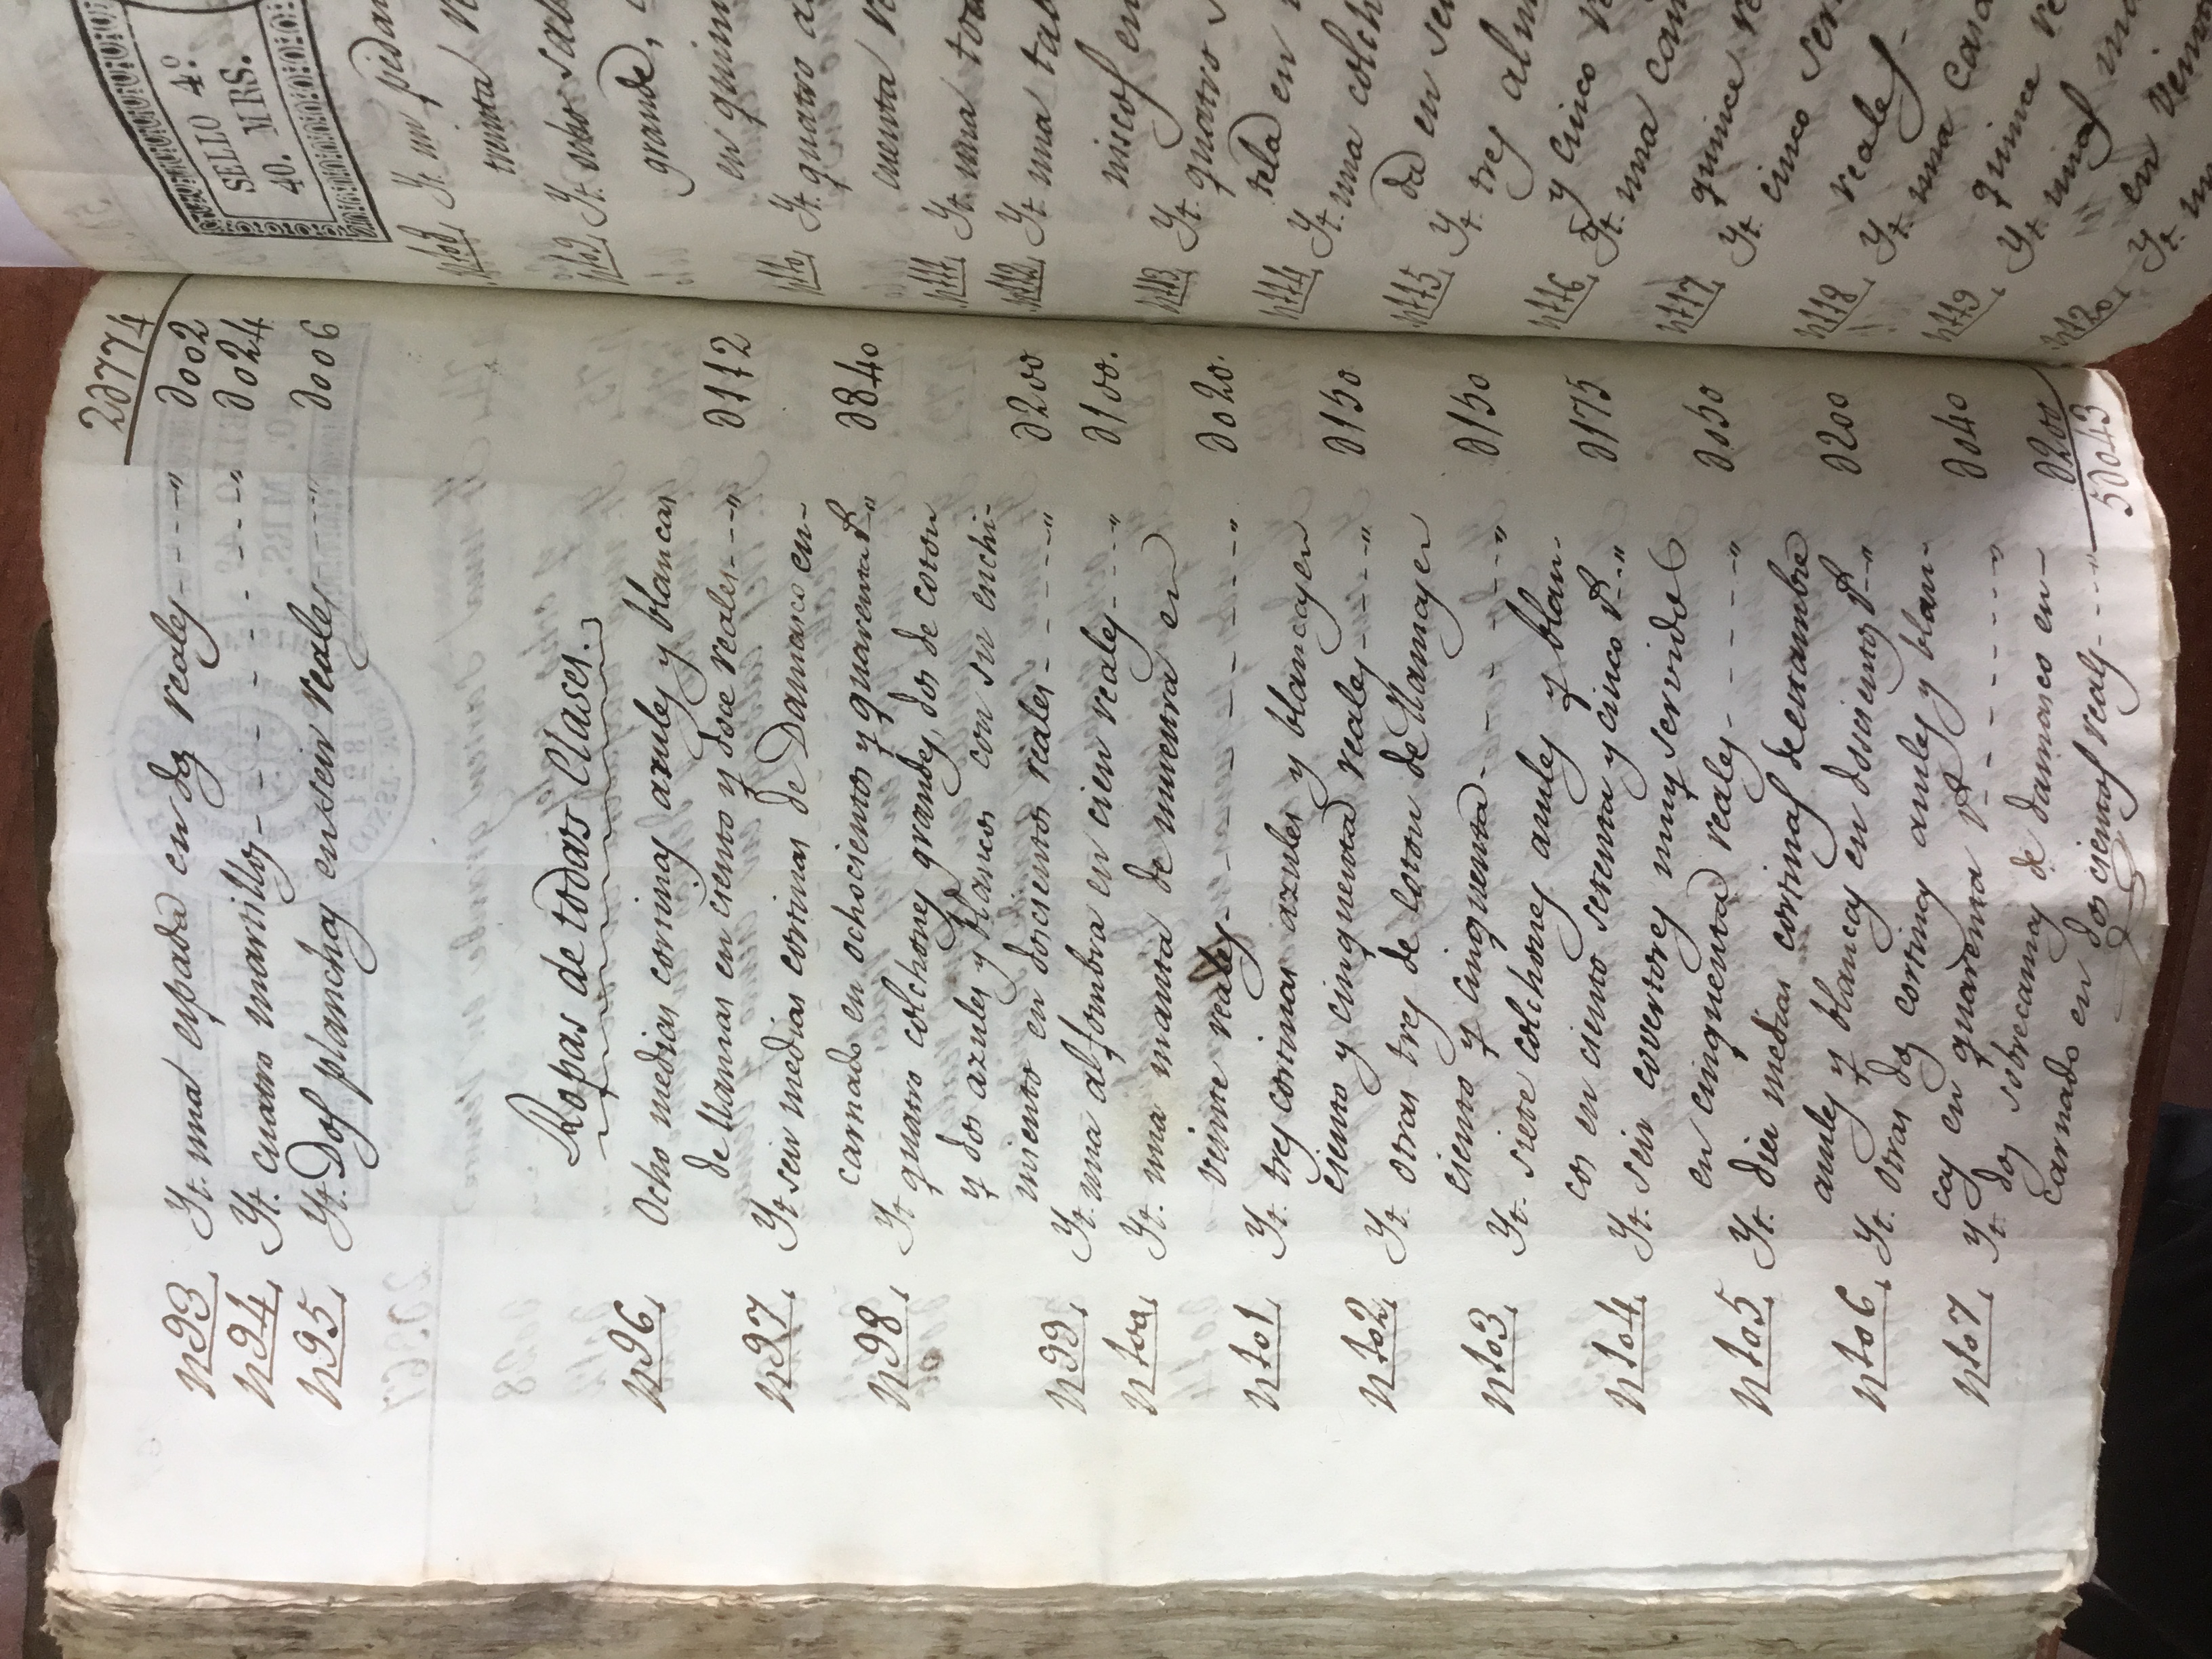 2d774
n93, Yt. una espada en dos reales - - - " d002
n94, Yt. cuatro martillos - - - - - - " d024
n95, Yt. Dos planchas en seis reales - - - " d006
Ropas de todas Clases.
n96, Ocho medias cortinas azules y blancas
de llamas en ciento y doce reales - - - " d112
n97, Yt. seis medias cortinas de Damasco en-
carnado en ochocientos y quarenta R. " d840
n98, Yt. quatro colchones grandes, dos de coton
y dos azules y blancos con su enchi-
miento en doscientos reales - - - - - " d200
n99, Yt. una alfombra en cien reales - - - - " d100.
n100, Yt. una manta de muestra en
veinte reales - - - - - - - - - " d020.
n101, Yt. tres cortinas azules y blancas en
ciento y cinquenta reales - - - - " d150
n102, Yt. otras tres de coton de llamas en
ciento y cinquenta - - - - - - " d150
n103, Yt. siete colchones azules y blan-
cos en ciento setenta y cinco R. - " d175
n104, Yt. seis covertores muy servidos
en cinquenta reales - - - - - " d050
n105, Yt. diez medias cortinas de estambre
azules y blancas en doscientos R. - " d200
n106, Yt. otras dos cortinas azules y blan-
cas en quarenta R. - - - - - - " d040
n107, Yt. dos sobrecamas de damasco en-
carnado en dos cientos reales - - - - " d200
5d043
SELLO 4º
40. MRS.
n108, Yt. un
treinta
n109, Yt. ocho
grande,
en
n110, Yt. quatro
cuenta
n111, Yt. una
n112, Yt. una
en
n113, Yt. quatro
tela en
n114, Yt. una
da en
n115, Yt. tres
y cinco
n116, Yt. una
quince
n117, Yt. cinco
reales
n118, Yt. una
quince
n119, Yt. unas
en
n120, Yt.